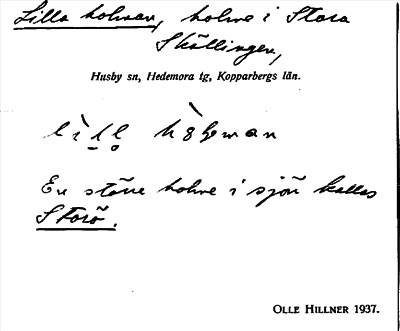 Lilla holmen, holme i Stora
Skällingen,
Husby sn, Hedemora tg, Kopparbergs län.
En större holme i sjön kallas
Storö.
OLLE HILLNER 1937.